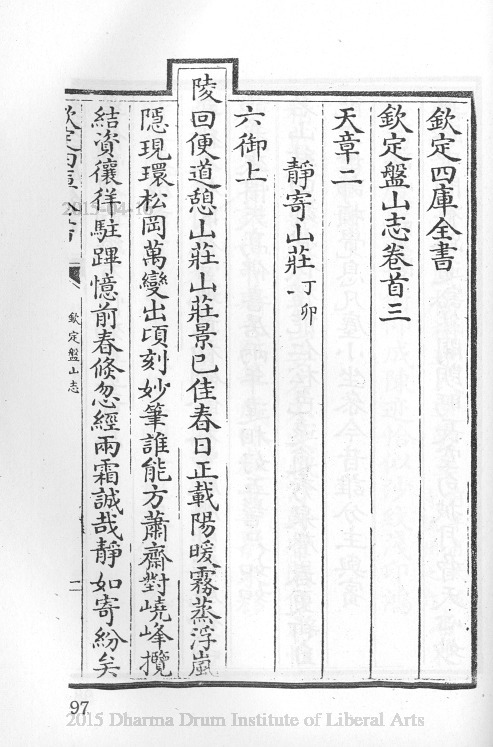 欽定四庫全書
欽定盤山志卷首三
天章二
靜寄山莊丁卯
六御上
陵回便道憩山莊山莊景已佳春日正載陽暖霧蒸浮嵐
隱現環松岡萬變出頃刻妙筆誰能方蕭齋對嶢峰攬
結資儴徉駐蹕憶前春倏忽經兩霜誠哉靜如寄紛矣
欽定盤山志
一
97
2015 Dharma Drum Institute of Liberal Arts